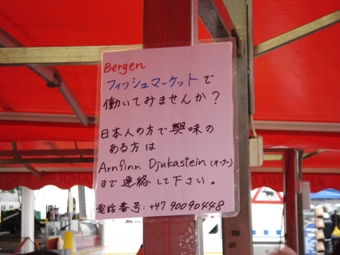 Bergen
フィッシュマーケットで
働いてみませんか？
日本人の方で興味の
ある方は
Arnfinn Djukastein (オーナー)
まで連絡して下さい。
電話番号: +47 90090448